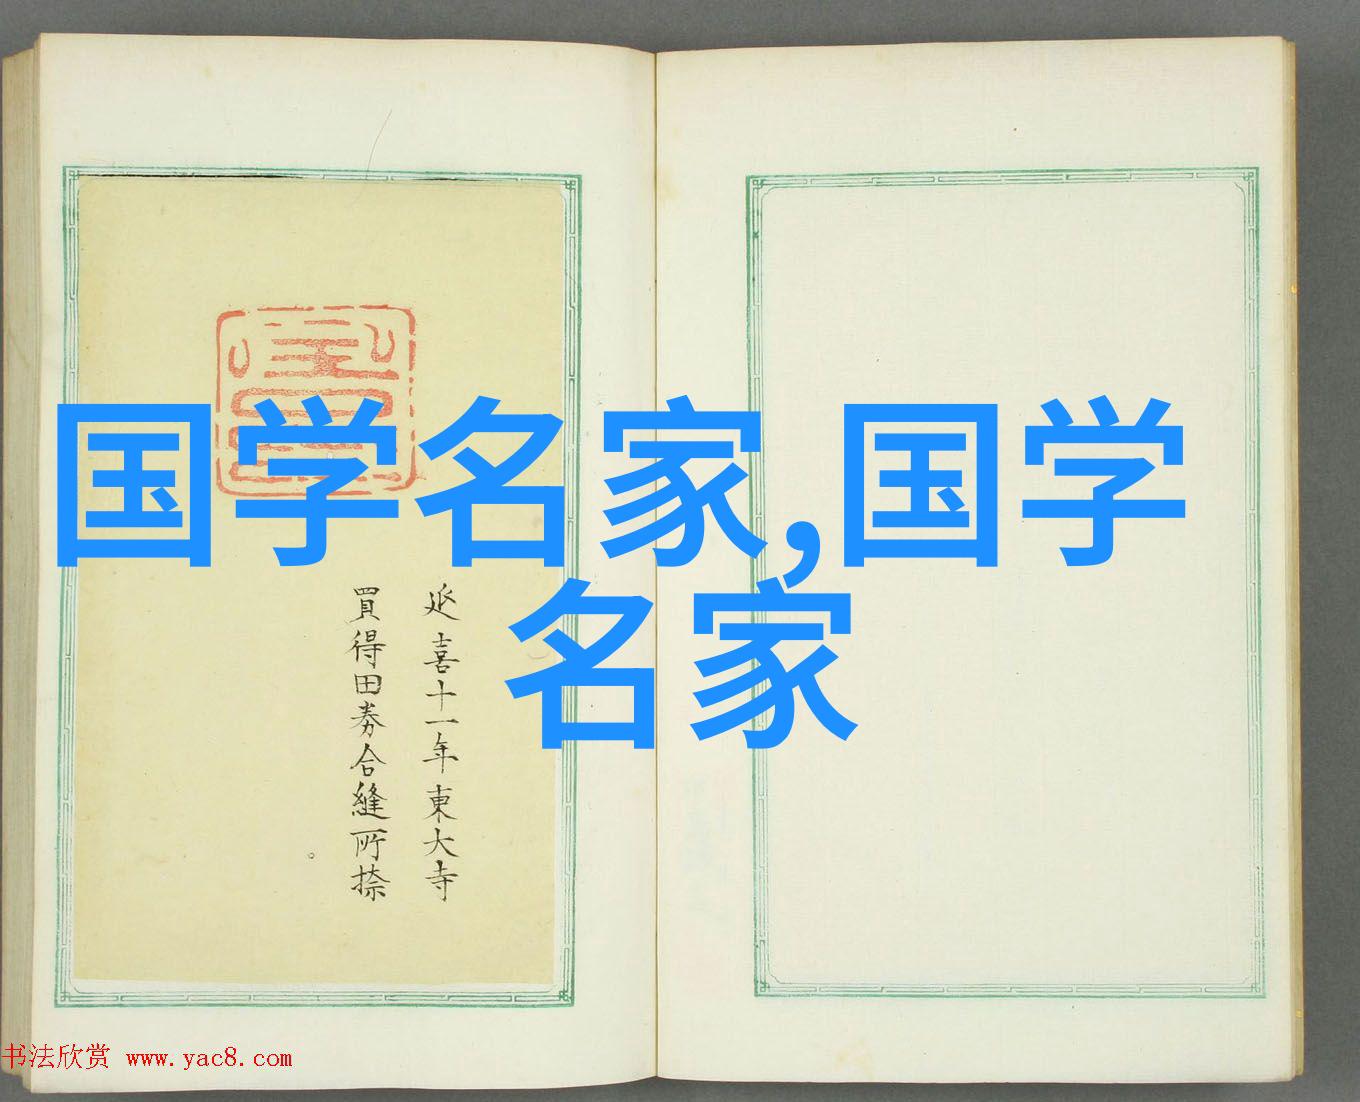 国学名家,国学
名家
延喜十一年東大寺
買得田券合縫所捺
书法欣赏 www.yac8.com